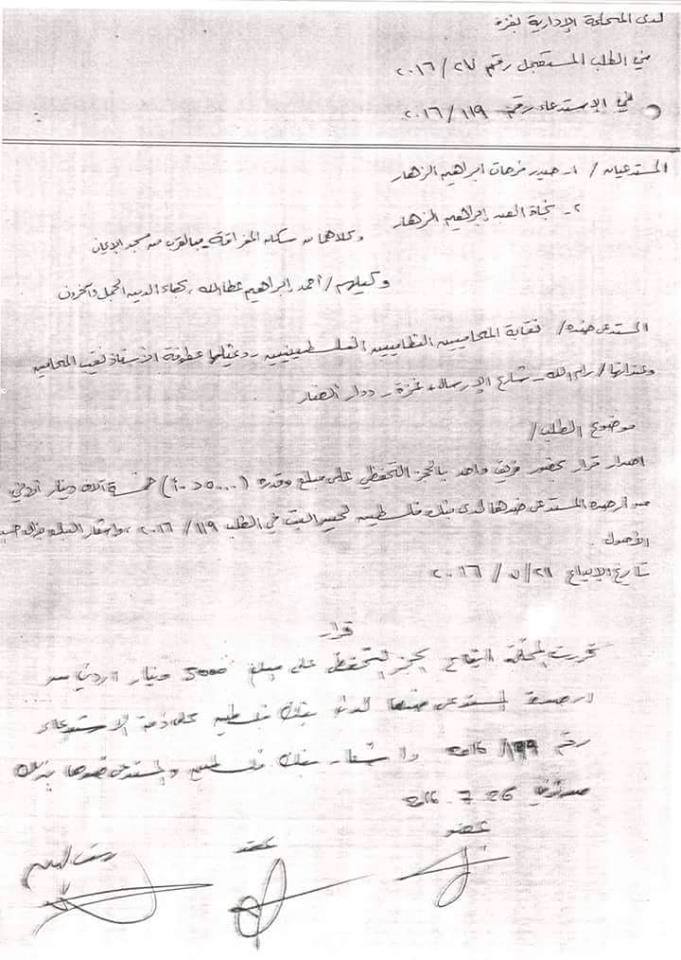 لدى المحكمة الإدارية بغزة
في الطلب المستعجل رقم ٢٧ / ٢٠١٦
في الاستدعاء رقم ١١٩ / ٢٠١٦
المستدعيان / ١- حيدر فرحات ابراهيم الزهار
٢- نجاة العبد إبراهيم الزهار
وكلاهما من سكان المغراقة بالقرب من مسجد الإيمان
وكيلهم / أحمد إبراهيم عطا الله، بهاء الدين الجمل وآخرون
المستدعى ضده / نقابة المحاميين النظاميين الفلسطينيين ويمثلها عطوفة الأستاذ نقيب المحاميين
وعنوانها / رام الله - شارع الإرسال، غزة - دوار
موضوع الطلب /
اصدار قرار بحضور فريق واحد بالحجز التحفظي على مبلغ وقدره (٥٠٠٠ د.أ) خمسة آلاف دينار أردني
من أرصدة المستدعى ضدها لدى بنك فلسطين لحين البت في الطلب ١١٩ / ٢٠١٦، واشعار البنك بذلك حسب
الأصول.
تاريخ الإيداع ٢٦ / ٧ / ٢٠١٦
قرار
قررت المحكمة ايقاع الحجز التحفظي على مبلغ 5000 دينار اردني من
ارصدة المستدعى ضدها لدى بنك فلسطين على ذمة الاستدعاء
رقم 119 / 2016 واشعار بنك فلسطين والمستدعى ضدها بذلك
26 . 7 . 2016
عضو
عضو